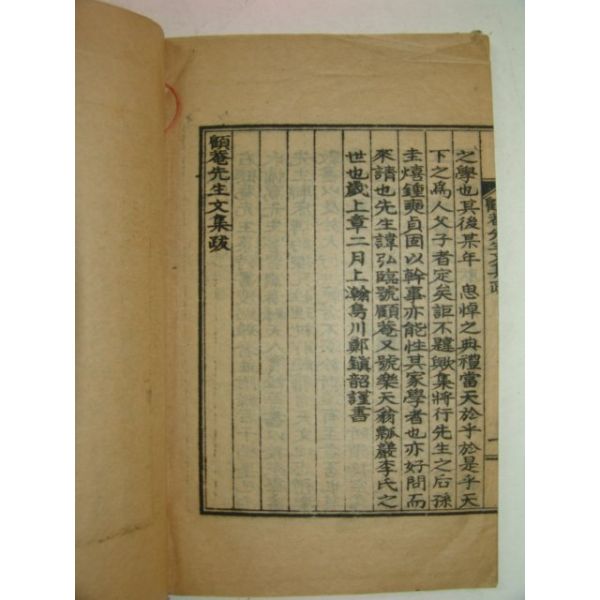 顧菴先生文集跋
之學也其後某年 恩悼之典禮當天於乎於是乎天
下之爲人父子者定矣詎不韙歟集將行先生之后孫
圭熺鍾奭貞固以幹事亦能性其家學者也亦好問而
來請也先生諱弘臨號顧菴又號樂天翁瓢巖李氏之
世也歲上章二月上瀚烏川鄭鎭韶謹書
顧菴先生文集跋